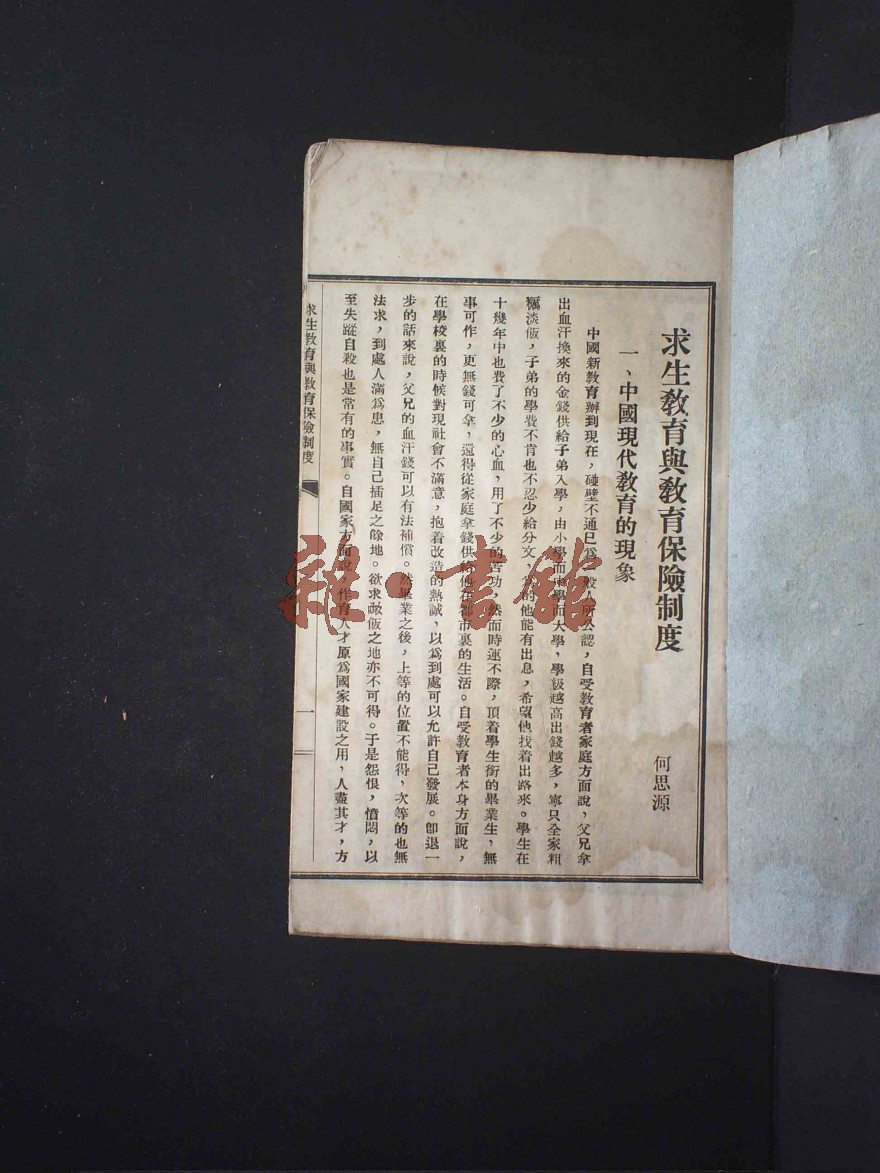 求生教育與教育保險制度
何思源
一、中國現代教育的現象
中國新教育辦到現在，碰壁不通已爲一般人所公認，自受教育者家庭方面說，父兄拿
出血汗換來的金錢供給子弟入學，由小學而中學而大學，學級越高出錢越多，寧只全家粗
糲淡飯，子弟的學費不肯也不忍少給分文，爲的他能有出息，希望他找着出路來。學生在
十幾年中也費了不少的心血，用了不少的苦功，然而時運不際，頂着學生銜的畢業生，無
事可作，更無錢可拿，還得從家庭拿錢供給他在都市裏的生活。自受教育者本身方面說，
在學校裏的時候對現社會不滿意，抱着改造的熱誠，以爲到處可以允許自己發展。卽退一
步的話來說，父兄的血汗錢可以有法補償。然畢業之後，上等的位置不能得，次等的也無
法求，到處人滿爲患，無自己插足之餘地。欲求啖飯之地亦不可得。于是怨恨，憤悶，以
至失蹤自殺也是常有的事實。自國家方面說，作育人才原爲國家建設之用，人盡其才，方
求生教育與教育保險制度
一
雜·書館